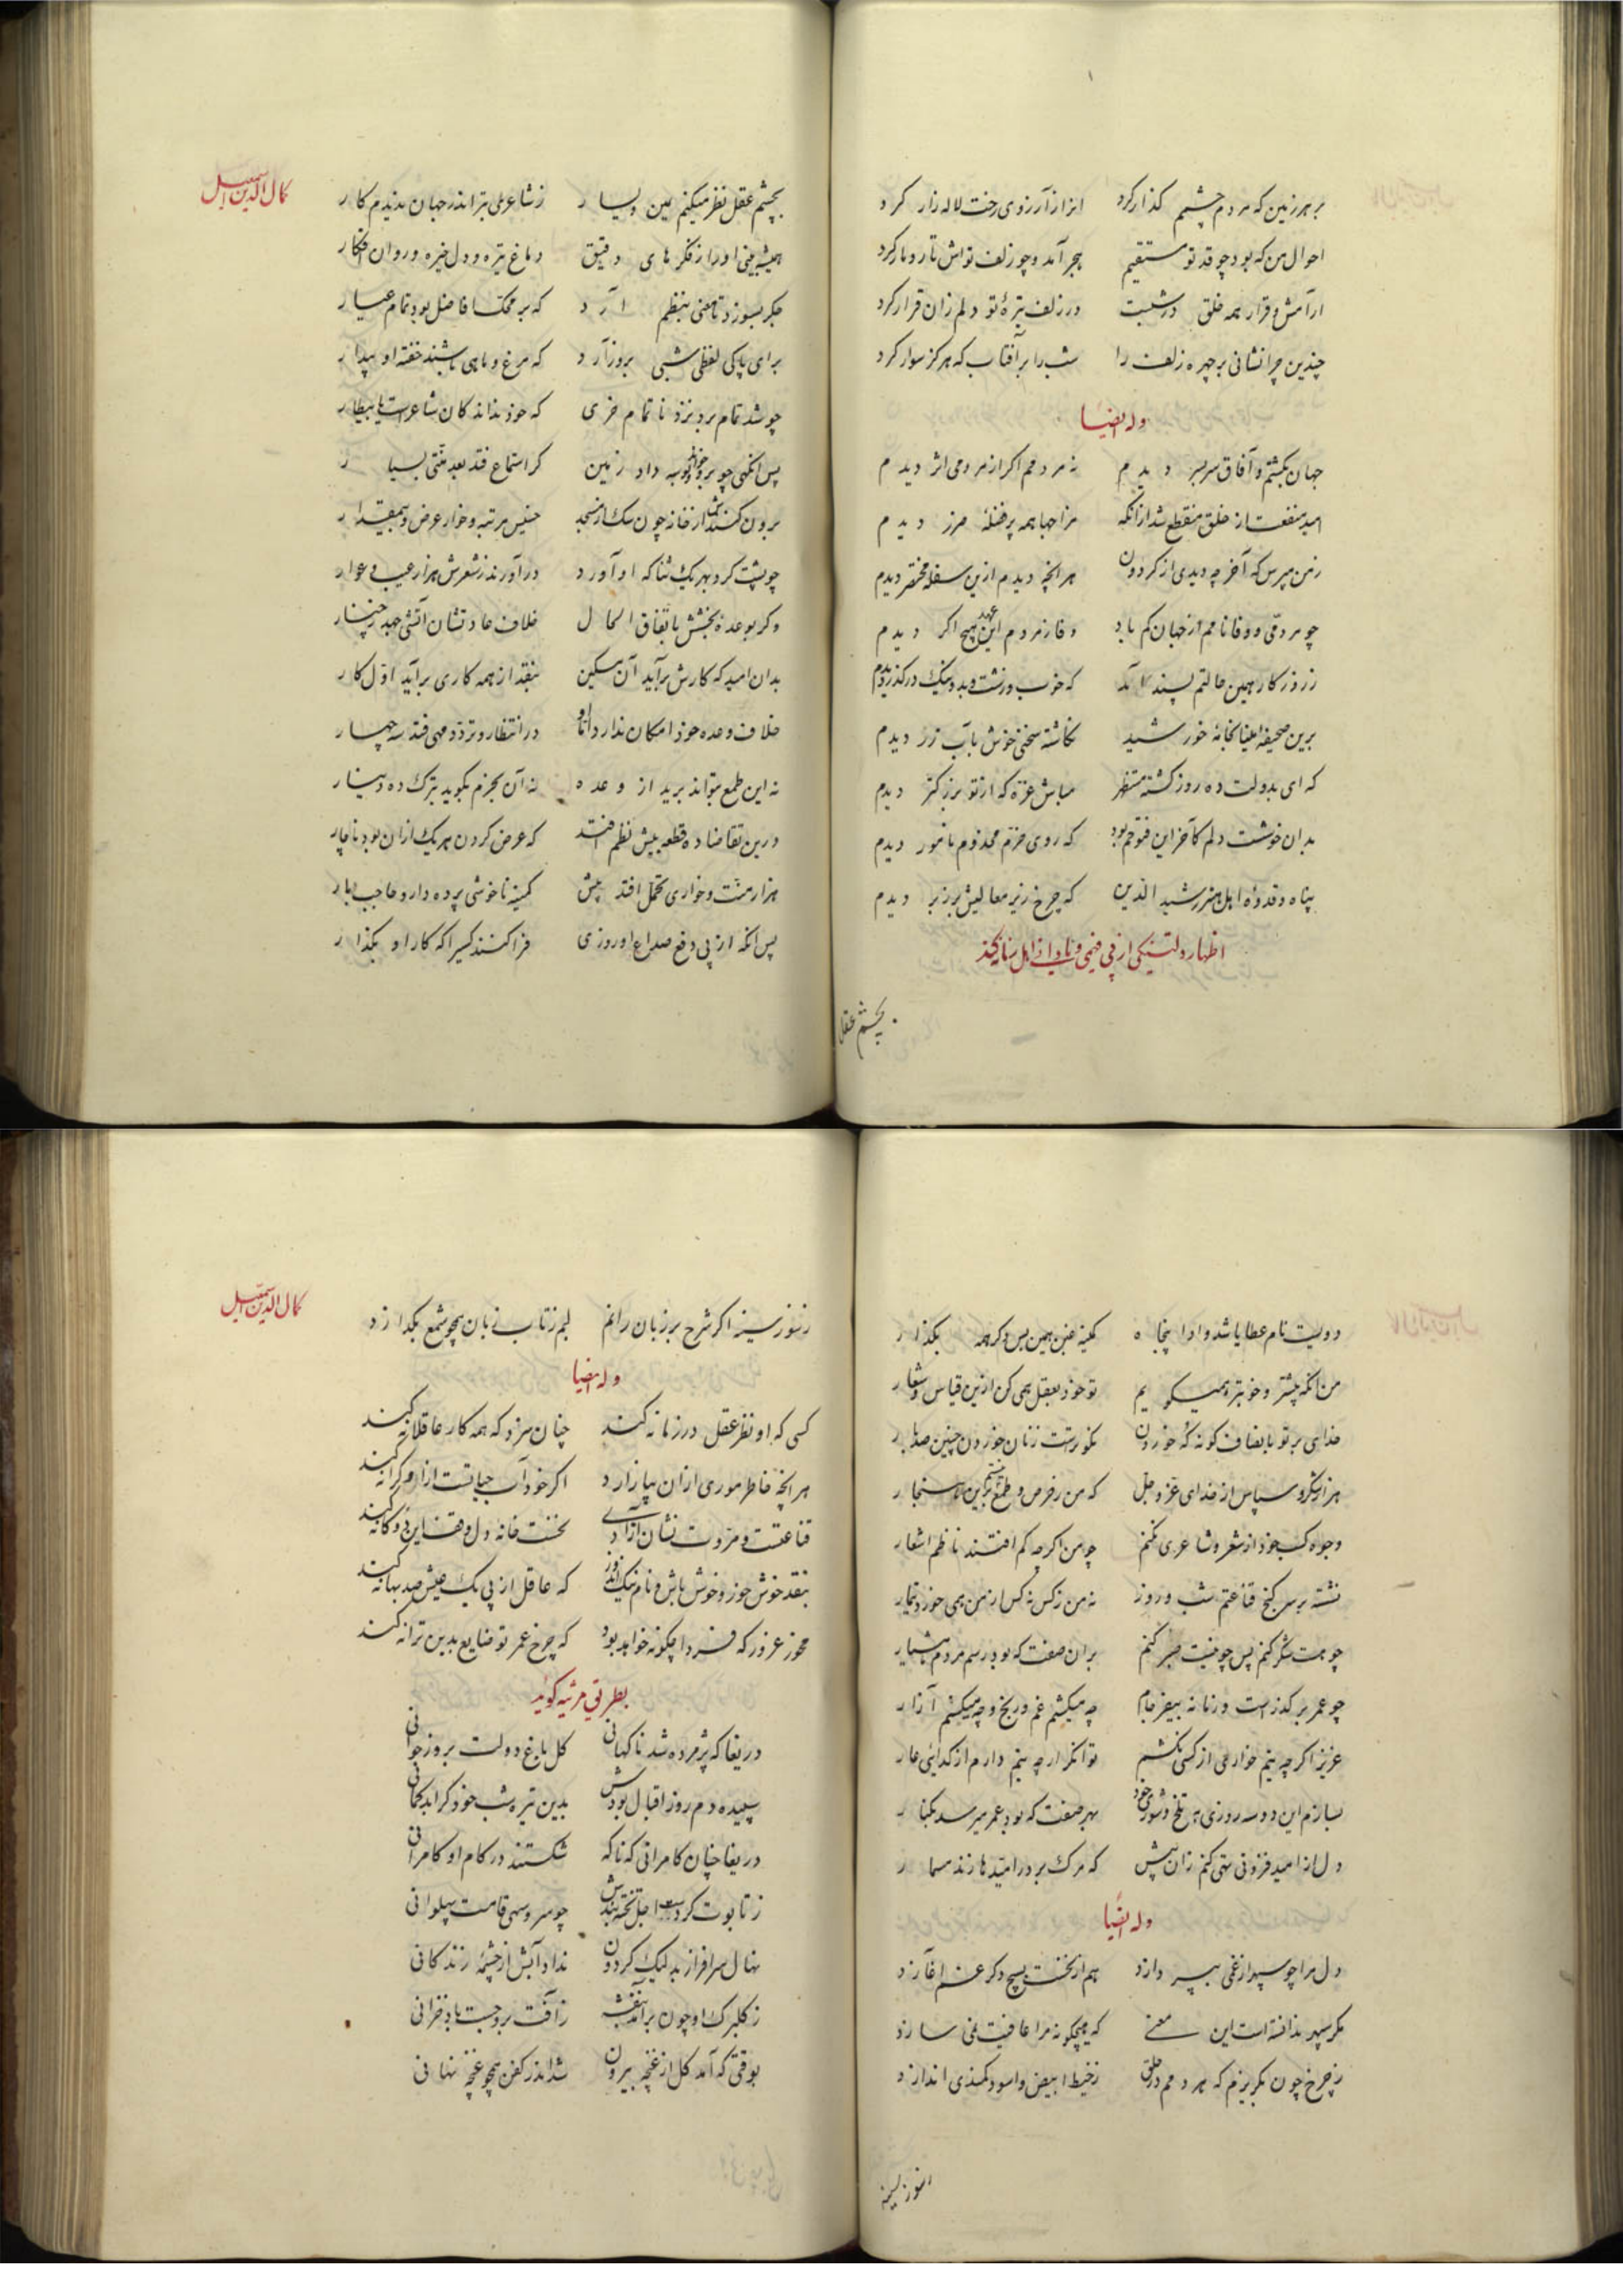 بر هر زمین که مردم چشمم گذار کرد انرا ز آرزوی رخت لاله زار کرد
احوال من که بود چو قد تو مستقیم هجر آمد و چو زلف تواش تار و مار کرد
آرامش و قرار همه خلق در شبست در زلف تیرهٔ تو دلم زان قرار کرد
چندین چرا نشانی بر چهره زلف را شب را بر آفتاب که هرگز سوار کرد
وله ایضا
جهان بگشتم و آفاق سربسر دیدم نه مردمم اگر از مردمی اثر دیدم
امید منفعت از خلق منقطع شد ازانکه مزاجها همه پر فضلهٔ ضرر دیدم
زمن مپرس که آخر چه دیدی از گردون هر انچه دیدم ازین سفله مختصر دیدم
چو مردمی و وفا نامم از جهان گم باد وفا ز مردم این عهد هیچ اگر دیدم
ز روزکار همین حالتم پسند آمد که خوب و زشت و بد و نیک در گذر دیدم
برین صحیفه مینا بخامهٔ خورشید نگاشته سخنی خوش بآب زر دیدم
که ای بدولت ده روز گشته مستظهر مباش غره که از تو بزرگتر دیدم
بدان خوشست دلم کاخر این فتوحم بود که روی خرم مخدوم نامور دیدم
پناه و قدوهٔ اهل هنر رشید الدین که چرخ زیر معالیش بر زبر دیدم
بچشم عقل
کمال الدین اسمعیل
بچشم عقل نظر میکنم یمین و یسار ز شاعری بتر اندر جهان ندیدم کار
همیشه بینی او را ز فکرهای دقیق دماغ تیره و دل خیره و روان افکار
جگر بسوزد تا معنی بنظم آرد که بر محک افاضل بود تمام عیار
برای پاکی لفظی شبی بروز آرد که مرغ و ماهی باشند خفته او بیدار
چو شد تمام برد نزد ناتمام خری که خود نداند کان شاعرست یا بیطار
پس انگهی چو برو خواند و بوسه داد زمین گر استماع فتد بعد منتی بسیار
برون کنندش از خانه چون سگ از مسجد
چو پشت کرد بهر یک ثنا که او آورد در آورند ز شعرش هزار عیب و عوار
وگر بوعدهٔ بخشش باتفاق الحال خلاف عادتشان آتشی جهد ز چنار
بدان امید که کارش برآید آن مسکین بنقد از همه کاری برآید اول کار
خلاف وعده خود امکان ندارد اما او در انتظار و تردد مهی فتد سه چهار
نه این طمع بتواند برید از وعده نه آن بجزم بگوید بترک ده دینار
درین تقاضا ده قطعه بیش نظم افتد که عرض کردن هر یک ازان بود ناچار
هزار منت و خواری تحمل افتد بیش کمینه ناخوشی پرده دار و حاجب بار
پس انکه از پی دفع صداع او روزی فرا کنند کسی را که کار او بگذار
دویست نام عطا باشد و ادا پنجاه کمینه غبن همین بس دگر همه بگذار
من انکه بیشتر و خوبتر همیگویم تو خود بعقل همی کن ازین قیاس و شمار
خدای بر تو بانصاف گو نه گه خوردن نکوترست ز نان خوردن چنین صد بار
هزار شکر و سپاس از خدای عز و جل
وجوه کسب خود از شعر و شاعری نکنم چو من اگرچه کم افتند ناظم اشعار
نشسته بر سر گنج قناعتم شب و روز نه من ز کس نه کس از من همی خورد تیمار
چو هست شکر کنم پس چو نیست صبر کنم بران صفت که بود رسم مردم هشیار
چو عمر بر گذرست و زمانه بیفرجام چه میکشم غم و رنج و چه میکشم آزار
عزیز اگر چه نیم خواری از کسی نکشم توانگر ار چه نیم دارم از گدائی عار
بسازم این دو سه روزی به تلخ و شور خود بهر صفت که بود عمر میرسد بکنار
دل از امید فزونی تهی کنم زان پیش که مرگ بر در امیدها زند مسمار
وله ایضا
دل مرا چو سپهر از غمی بپردازد هم از نخست بسیج دگر غم آغازد
مگر سپهر ندانسته است این معنی که هیچگونه مرا عافیت نمی سازد
ز چرخ چون بگریزم که هر دمم در حلق ز خیط ابیض و اسود کمندی اندازد
ز سوز سینه
کمال الدین اسمعیل
ز سوز سینه اگر شرح بر زبان رانم لبم ز تاب زبان همچو شمع بگدازد
وله ایضا
کسی که او نظر عقل در زمانه کند چنان سزد که همه کار عاقلانه کند
هر انچه خاطر موری ازان بیازارد اگر خود آب حیاتست ازان کرانه کند
قناعتست و مروت نشان آزادی نخست خانه دل وقف این دوگانه کند
بنقد خوش خور و خوش باش و نام نیک اندوز که عاقل از پی یک عیش صد بهانه کند
مخور غرور که فردا چگونه خواهد بود که چرخ عمر تو ضایع بدین ترانه کند
بطریق مرثیه گوید
دریغا که پژمرده شد ناگهانی گل باغ دولت بروز جوانی
سپیده دم روز اقبال بودش بدین تیره شب خود کرا بد گمانی
دریغا چنان کامرانی که ناگه شکستند در کام او کامرانی
ز تابوت کردست اجل تخته بندش چو سرو سهی قامت پهلوانی
نهال سرافراز بد لیک گردون نداد آبش از چشمهٔ زندگانی
ز گلبرگ او چون برآمد بنفشه ز آفت برو جست باد خزانی
بوقتی که آمد گل از غنچه بیرون شد اندر کفن همچو غنچه نهانی